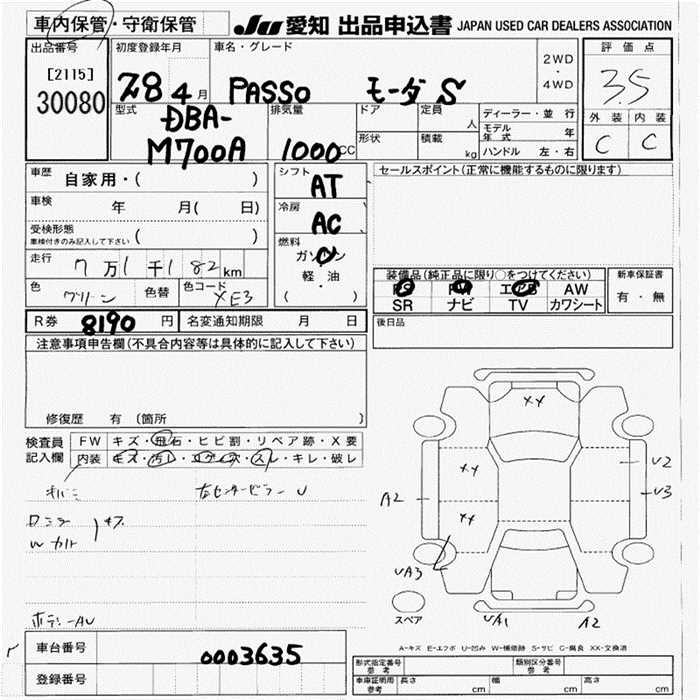 車内保管・守衛保管
JU 愛知 出品申込書 JAPAN USED CAR DEALERS ASSOCIATION
出品番号
[2115]
30080
初度登録年月
28 4月
車名・グレード
PASSO モーダ S
2WD・4WD
評価点
3.5
外装 内装
C C
型式
DBA-
M700A
排気量
1000cc
ドア
定員 人
形状
積載 kg
ディーラー・並行
モデル年式 年
ハンドル 左・右
車歴 自家用・( )
車検 年 月( 日)
受検形態
車検付きのみ記入して下さい ( )
走行 7万1千182km
色 グリーン 色替 色コード XE3
シフト
AT
冷房
AC
燃料
ガソリン
軽・油
( )
セールスポイント(正常に機能するものに限ります)
装備品(純正品に限り○をつけてください)
PS PW エアB AW
SR ナビ TV カワシート
新車保証書
有・無
R券 8190円 名変通知期限 月 日
後日品
注意事項申告欄(不具合内容等は具体的に記入して下さい)
修復歴 有 〔箇所 〕
検査員記入欄
FW キズ・飛石・ヒビ割・リペア跡・X要
内装 キズ・汚レ・コゲ・スレ・キレ・破レ
右センターピラー U
XX
XX
XX
A2
U2
U3
UA3
UA1
A2
スペア
A-キズ E-エクボ U-凹み W-補修跡 S-サビ C-腐食 XX-交換済
車台番号 0003635
登録番号
形式指定番号 参考
類別区分番号 参考
車庫証明用 参考 長さ cm 幅 cm 高さ cm